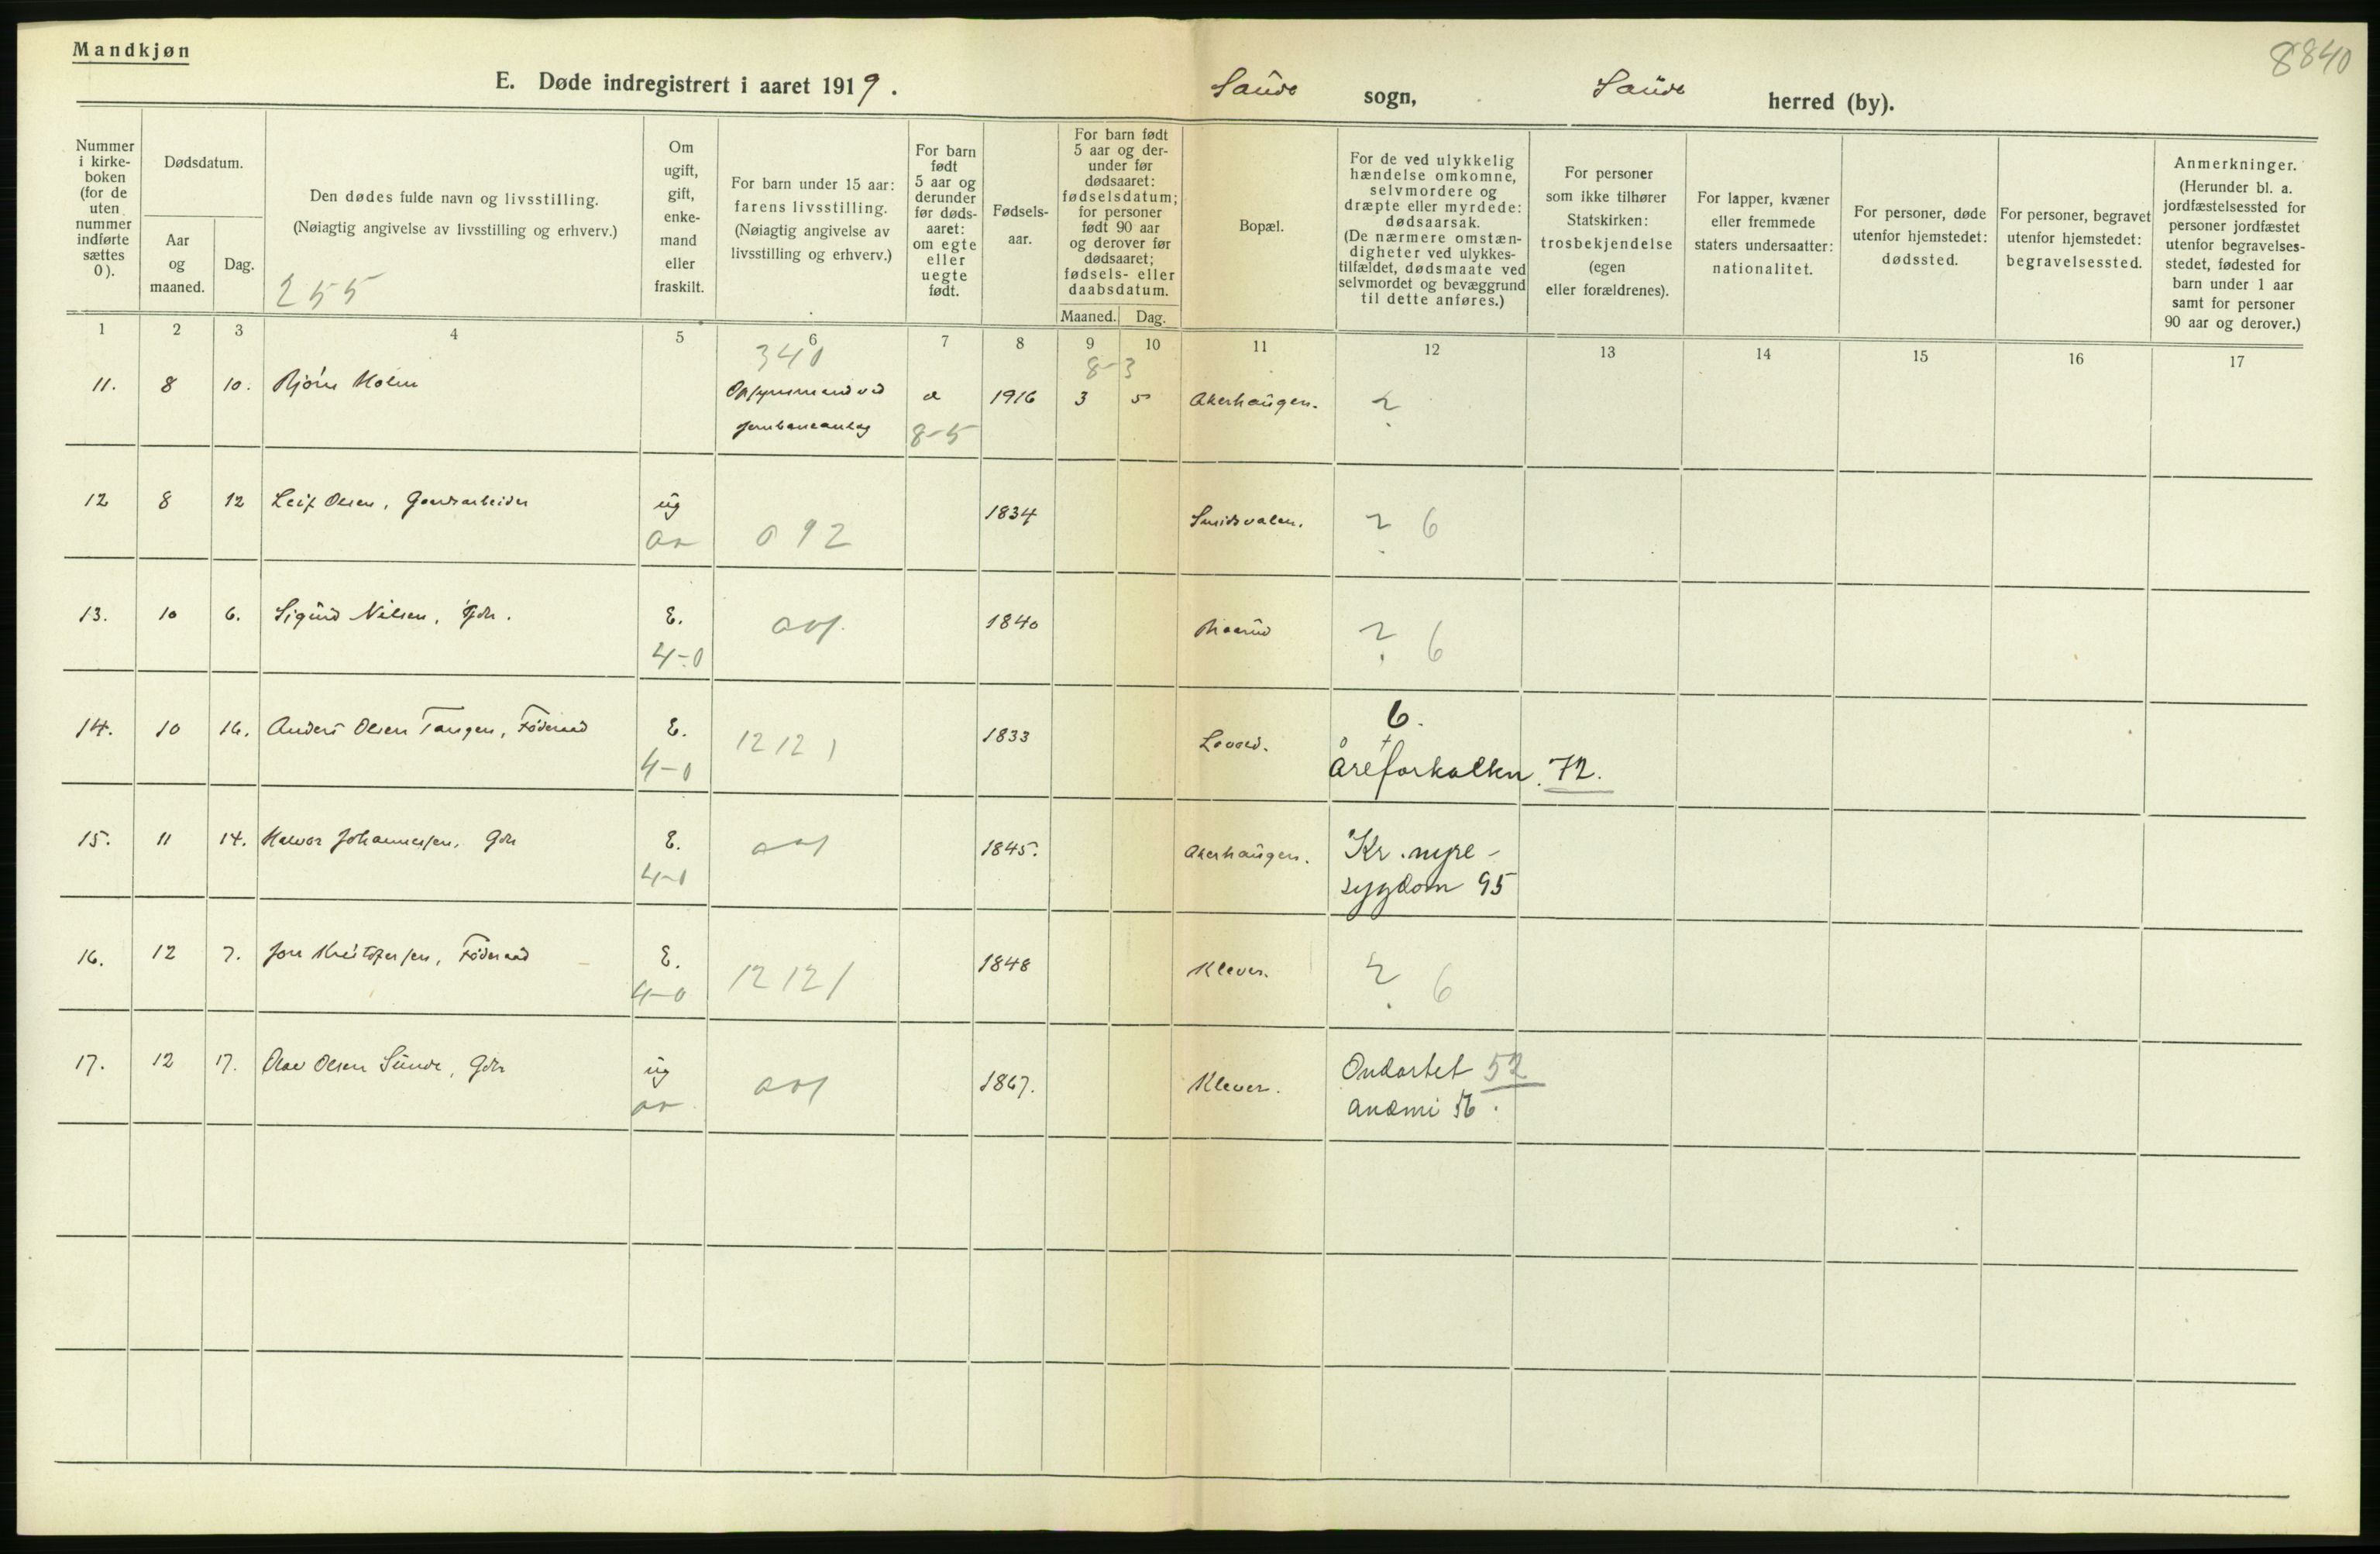 Mandkjøn
8840
E. Døde indregistrert i aaret 1919.
Saude sogn, Saude herred (by).
Nummer i kirke-boken (for de uten nummer indførte sættes 0).
Dødsdatum.
Aar og maaned.
Dag.
Den dødes fulde navn og livsstilling.
(Nøiagtig angivelse av livsstilling og erhverv.)
255
Om ugift, gift, enke-mand eller fraskilt.
For barn under 15 aar: farens livsstilling. (Nøiagtig angivelse av livsstilling og erhverv.)
For barn født 5 aar og derunder før døds-aaret: om egte eller uegte født.
Fødsels-aar.
For barn født 5 aar og der-under før dødsaaret: fødselsdatum; for personer født 90 aar og derover før dødsaaret; fødsels- eller daabsdatum.
Maaned. Dag.
Bopæl.
For de ved ulykkelig hændelse omkomne, selvmordere og dræpte eller myrdede: dødsaarsak. (De nærmere omstæn-digheter ved ulykkes-tilfældet, dødsmaate ved selvmordet og bevæggrund til dette anføres.)
For personer som ikke tilhører Statskirken: trosbekjendelse (egen eller forældrenes).
For lapper, kvæner eller fremmede staters undersaatter: nationalitet.
For personer, døde utenfor hjemstedet: dødssted.
For personer, begravet utenfor hjemstedet: begravelsessted.
Anmerkninger. (Herunder bl. a. jordfæstelsessted for personer jordfæstet utenfor begravelses-stedet, fødested for barn under 1 aar samt for personer 90 aar og derover.)
1 2 3 4 5 6 7 8 9 10 11 12 13 14 15 16 17
340 8-3
11. 8 10. Bjørn Holm Opsynsmand ved 1916 3 5 Akerhaugen. ?
jernbaneanlæg 8-5
12 8 12 Leif Olsen, Gaardsarbeider ug 1834 ? 6
092
13. 10 6. Sigurd Nilsen, Gdr. E. 1840 ? 6
4-0
14. 10 16. Anders Olsen Tangen, Føderaad E. 1212 1 1833 6.
4-0 åreforkalkn. 72.
15. 11 14. Halvor Johannessen, Gdr E. 1845. Akerhaugen. Kr. nyre-
4-0 sygdom 95
16. 12 7. Jon Kristofersen, Føderaad E. 1212 1 1848 Klever. ? 6
4-0
17. 12 17. Olav Olsen Sunde, Gdr ug 1867. Klever. Ondartet 52
anæmi 56.